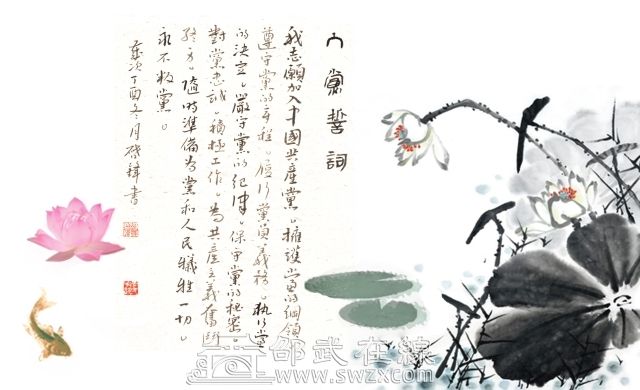 入黨誓詞
我志願加入中國共產黨。擁護党的綱領
遵守黨的章程。履行黨員義務。執行黨
的決定。嚴守黨的紀律。保守黨的秘密。
對黨忠誠。積極工作。為共產主義奮鬥
終身。隨時準備為黨和人民犧牲一切。
永不叛黨。
歲次丁酉冬月 書
邵武在線
www.swzx.com